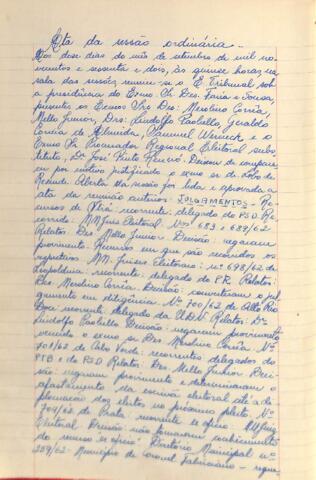 Ata da sessão ordinária -
Aos doze dias do mês de setembro de mil no-
vecentos e sessenta e dois, às quinze horas, na
sala das sessões, reuniu-se o E. Tribunal sob
a presidência do Exmo Sr. Des. Faria e Sousa,
presentes os Exmos Srs Des: Merolino Corrêa,
Mello Junior, Drs: Lindolfo Paolielo, Geraldo
Corrêa de Almeida, Samuel Werneck e o
Exmo Sr Procurador Regional Eleitoral subs-
tituto, Dr José Pinto Renó. Deixou de compare-
cer por motivo justificado o exmo sr dr
Resende. Aberta a sessão foi lida e aprovada a
ata da reunião anterior. JULGAMENTOS - Re-
cursos de recorrente: delegado do PSD Re-
corrido: M.M Juiz Eleitoral. Nºs 683 e 689/62
Relator: Des. Mello Junior Decisão: negaram
provimento. Recursos em que são recorridos os
respectivos MM. Juízes Eleitorais: nº 698/62 de
Leopoldina recorrente: delegado do P.R. Relator:
Des. Merolino Corrêa. Decisão: converteram o jul-
gamento em diligência. Nº 700/62 de Alto Rio
Doce recorrente delegado da UDN Relator: Dr
Lindolfo Paolielo Decisão: negaram provimento
vencido o exmo sr Des. Merolino Corrêa. Nº
701/62 de Cabo Verde: recorrentes delegados do
PTB e do PSD Relator: Des. Mello Junior Deci-
são: negaram provimento e determinaram o
afastamento da escrivã eleitoral até a di-
plomação dos eleitos no próximo pleito. Nº
704/62 de Prata: recorrente ex officio: MM Juiz
Eleitoral Decisão não tomaram conhecimento
do recurso ex officio. Diretório Municipal nº
239/62 - Município de Coronel Fabriciano -